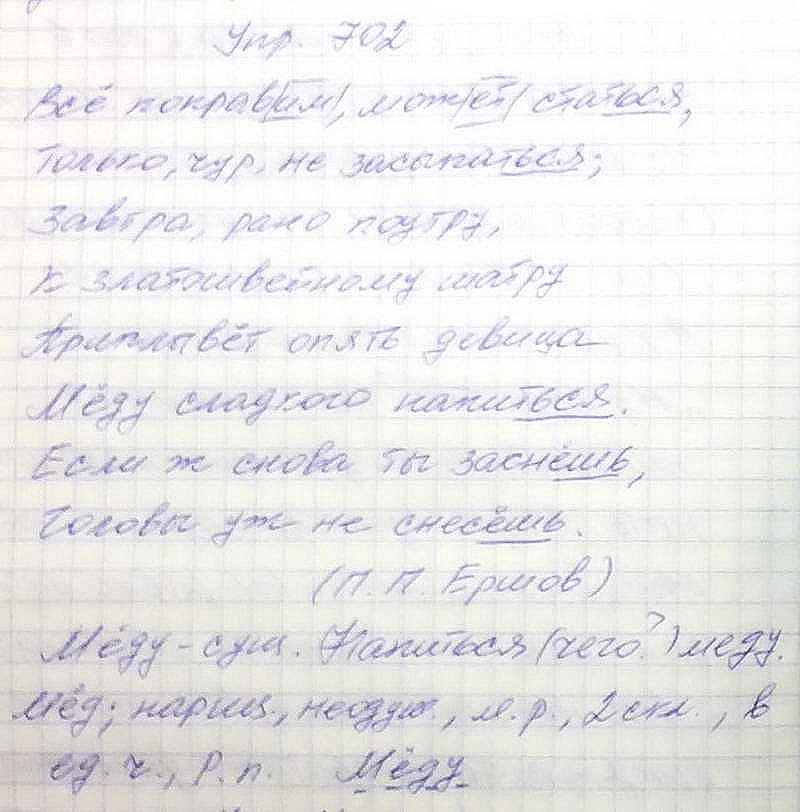 Упр. 702
Всё поправим, может статься,
Только, чур, не засыпаться;
Завтра, рано поутру,
К златошвейному шатру
Приплывёт опять девица
Мёду сладкого напиться.
Если ж снова ты заснёшь,
Головы уж не снесёшь.
(П. П. Ершов)
Мёду - сущ. Напиться (чего?) меду.
Мёд; нариц., неодуш., м.р., 2 скл., в
ед. ч., Р. п. Мёду.